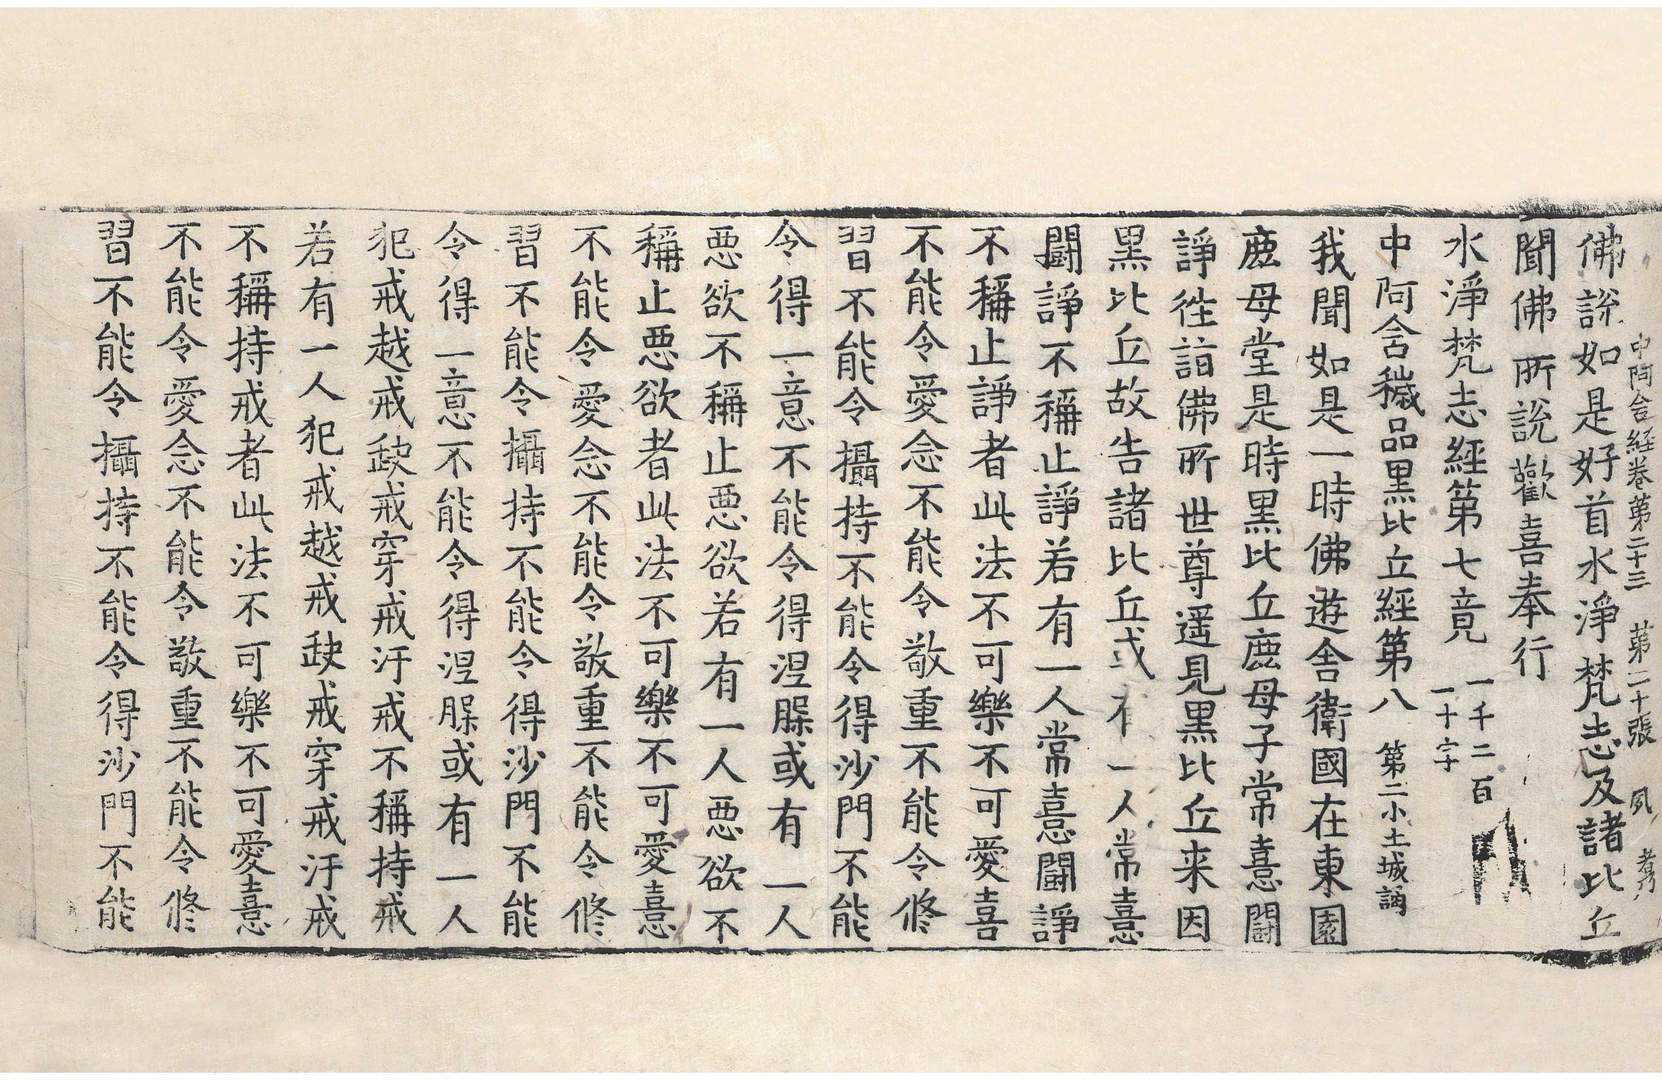 中阿含經卷第二十三　第二十張　夙
佛說如是好首水淨梵志及諸比丘
聞佛所說歡喜奉行
水淨梵志經第七竟一千二百一十字
中阿含穢品黑比丘經第八第二小土城誦
我聞如是一時佛遊舍衛國在東園
鹿母堂是時黑比丘鹿母子常憙鬪
諍往詣佛所世尊遥見黑比丘来因
黑比丘故告諸比丘或有一人常憙
鬪諍不稱止諍若有一人常憙鬪諍
不稱止諍者此法不可樂不可愛喜
不能令愛念不能令敬重不能令修
習不能令攝持不能令得沙門不能
令得一意不能令得涅槃或有一人
惡欲不稱止惡欲若有一人惡欲不
稱止惡欲者此法不可樂不可愛憙
不能令愛念不能令敬重不能令修
習不能令攝持不能令得沙門不能
令得一意不能令得涅槃或有一人
犯戒越戒缺戒穿戒汙戒不稱持戒
若有一人犯戒越戒缺戒穿戒汙戒
不稱持戒者此法不可樂不可愛憙
不能令愛念不能令敬重不能令修
習不能令攝持不能令得沙門不能